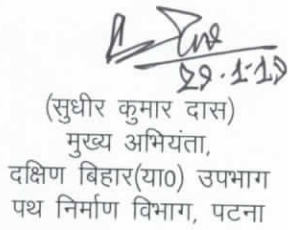 29.1.19
(सुधीर कुमार दास)
मुख्य अभियंता,
दक्षिण बिहार(या0) उपभाग
पथ निर्माण विभाग, पटना